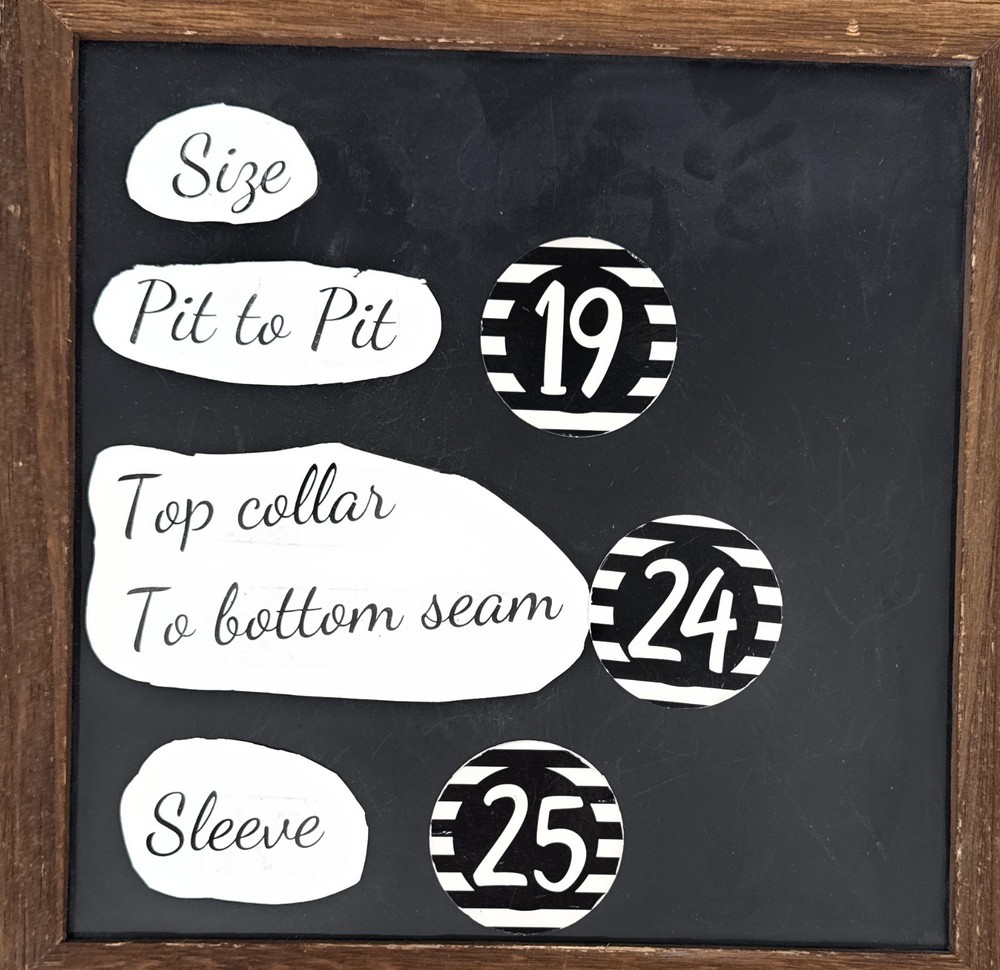 Size
Pit to Pit 19
Top collar
To bottom seam 24
Sleeve 25